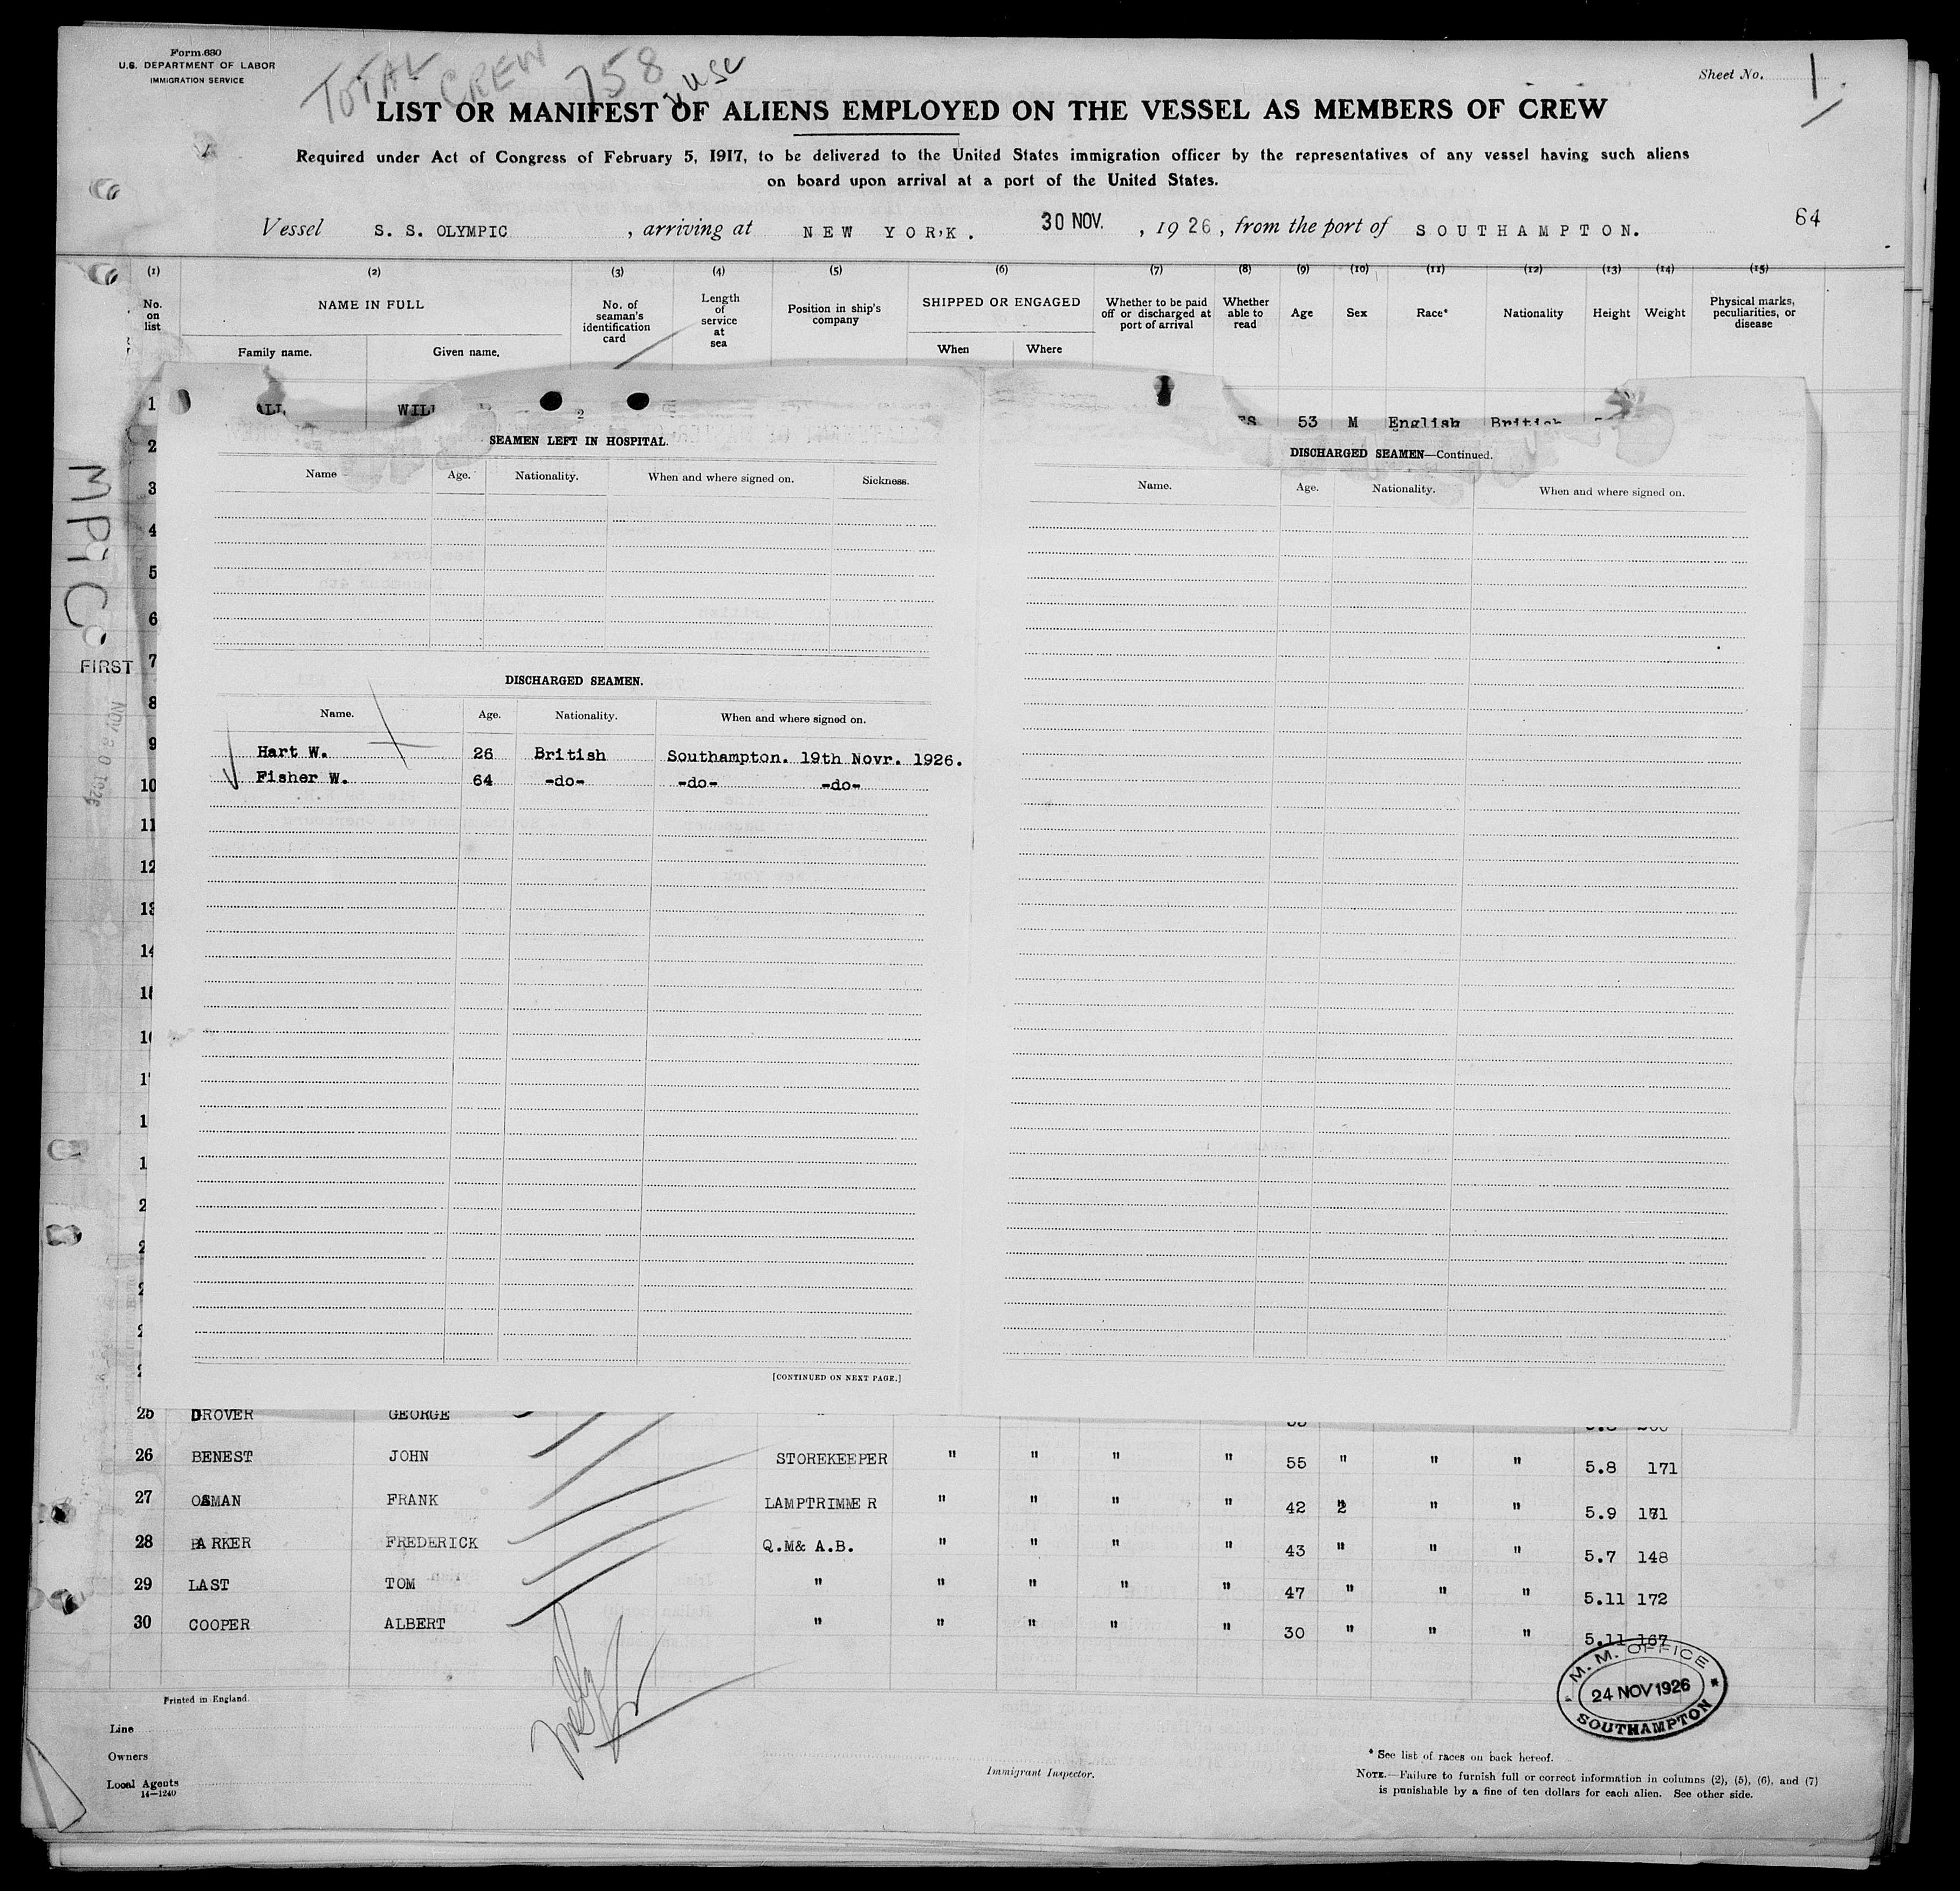 Form 680
U.S. DEPARTMENT OF LABOR
IMMIGRATION SERVICE
TOTAL CREW 758
Sheet No. 1
LIST OR MANIFEST OF ALIENS EMPLOYED ON THE VESSEL AS MEMBERS OF CREW
Required under Act of Congress of February 5, 1917, to be delivered to the United States immigration officer by the representatives of any vessel having such aliens
on board upon arrival at a port of the United States.
Vessel S. S. OLYMPIC, arriving at NEW YORK. 30 NOV., 1926, from the port of SOUTHAMPTON.
64
(1) (2) (3) (4) (5) (6) (7) (8) (9) (10) (11) (12) (13) (14) (15)
No. on list
NAME IN FULL
Family name. Given name.
No. of seaman's identification card
Length of service at sea
Position in ship's company
SHIPPED OR ENGAGED
When Where
Whether to be paid off or discharged at port of arrival
Whether able to read
Age
Sex
Race*
Nationality
Height
Weight
Physical marks, peculiarities, or disease
1 53 M English British
2
3
4
5
6
7
8
9
10
11
12
13
14
SEAMEN LEFT IN HOSPITAL.
Name Age. Nationality. When and where signed on. Sickness.
DISCHARGED SEAMEN.
Name. Age. Nationality. When and where signed on.
Hart W. 26 British Southampton. 19th Novr. 1926.
Fisher W. 64 -do- -do- -do-
[CONTINUED ON NEXT PAGE.]
DISCHARGED SEAMEN—Continued.
Name. Age. Nationality. When and where signed on.
FIRST
NOV 30 1926
25 DROVER GEORGE "
26 BENEST JOHN STOREKEEPER " " " " 55 " " " 5.8 171
27 OSMAN FRANK LAMPTRIMMER " " " " 42 " " " 5.9
28 BARKER FREDERICK Q.M& A.B. " " " " 43 " " " 5.7 148
29 LAST TOM " " " " " 47 " " " 5.11 172
30 COOPER ALBERT " " " " " 30 " " " 5.11 167
M. M. OFFICE
24 NOV 1926
SOUTHAMPTON
Printed in England.
Line
Owners
Local Agents
14—1240
Immigrant Inspector.
* See list of races on back hereof.
NOTE.—Failure to furnish full or correct information in columns (2), (5), (6), and (7)
is punishable by a fine of ten dollars for each alien. See other side.